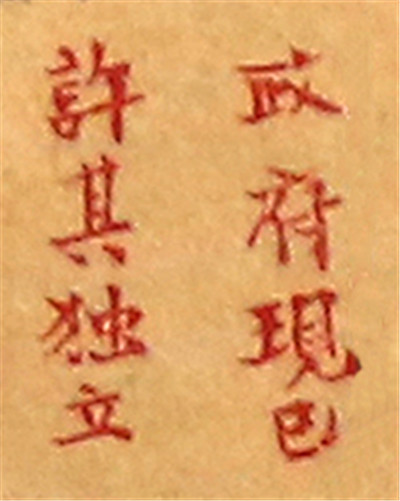 政府現已
許其独立